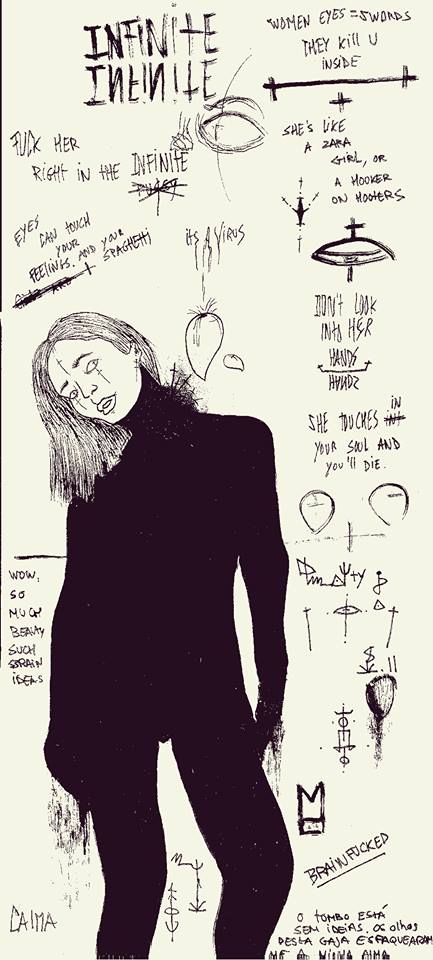 INFINITE
INFINITE
WOMEN EYES = SWORDS
THEY KILL U
INSIDE
FUCK HER
RIGHT IN THE INFINITE
SHE'S LIKE
A ZARA
GIRL, OR
A HOOKER
ON HOOTERS
EYES
CAN TOUCH
YOUR
FEELINGS. AND YOUR
SPAGHETTI
ITS A VIRUS
DON'T LOOK
INTO HER
HANDS
HANDS
SHE TOUCHES IN
YOUR SOUL AND
YOU'LL DIE.
WOW,
SO
MUCH
BEAUTY
SUCH
BRAIN
IDEAS
BRAINFUCKED
CAIMA
O TOMBO ESTÁ
SEM IDEIAS. OS OLHOS
DESTA GAJA ESFAQUEARAM
ME A MINHA ALMA